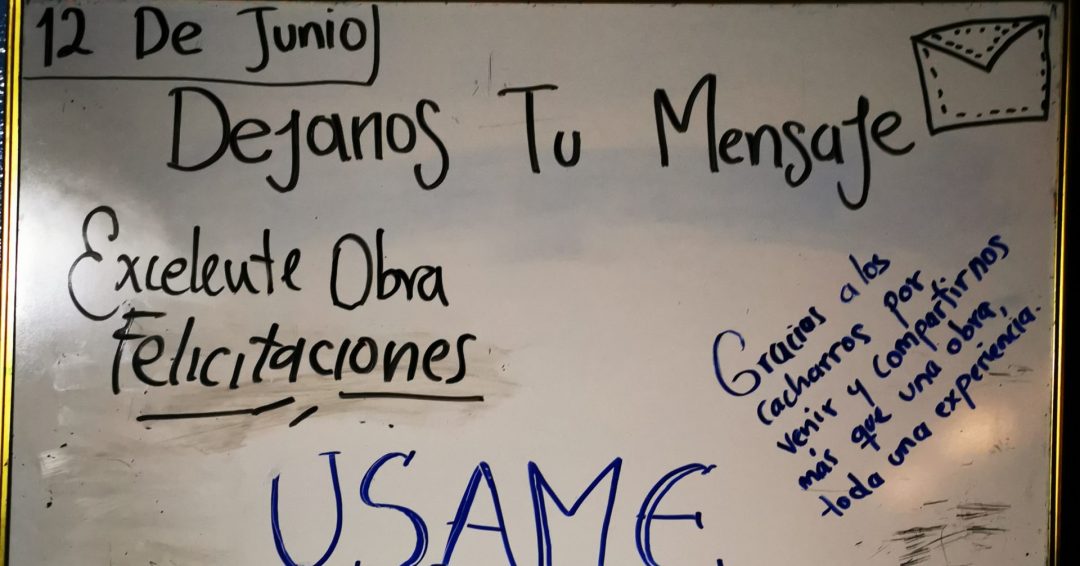 12 De Junio
Dejanos Tu Mensaje
Excelente Obra
Felicitaciones
Gracias a los
cacharros por
venir y compartirnos
más que una obra,
toda una experiencia.
USAME